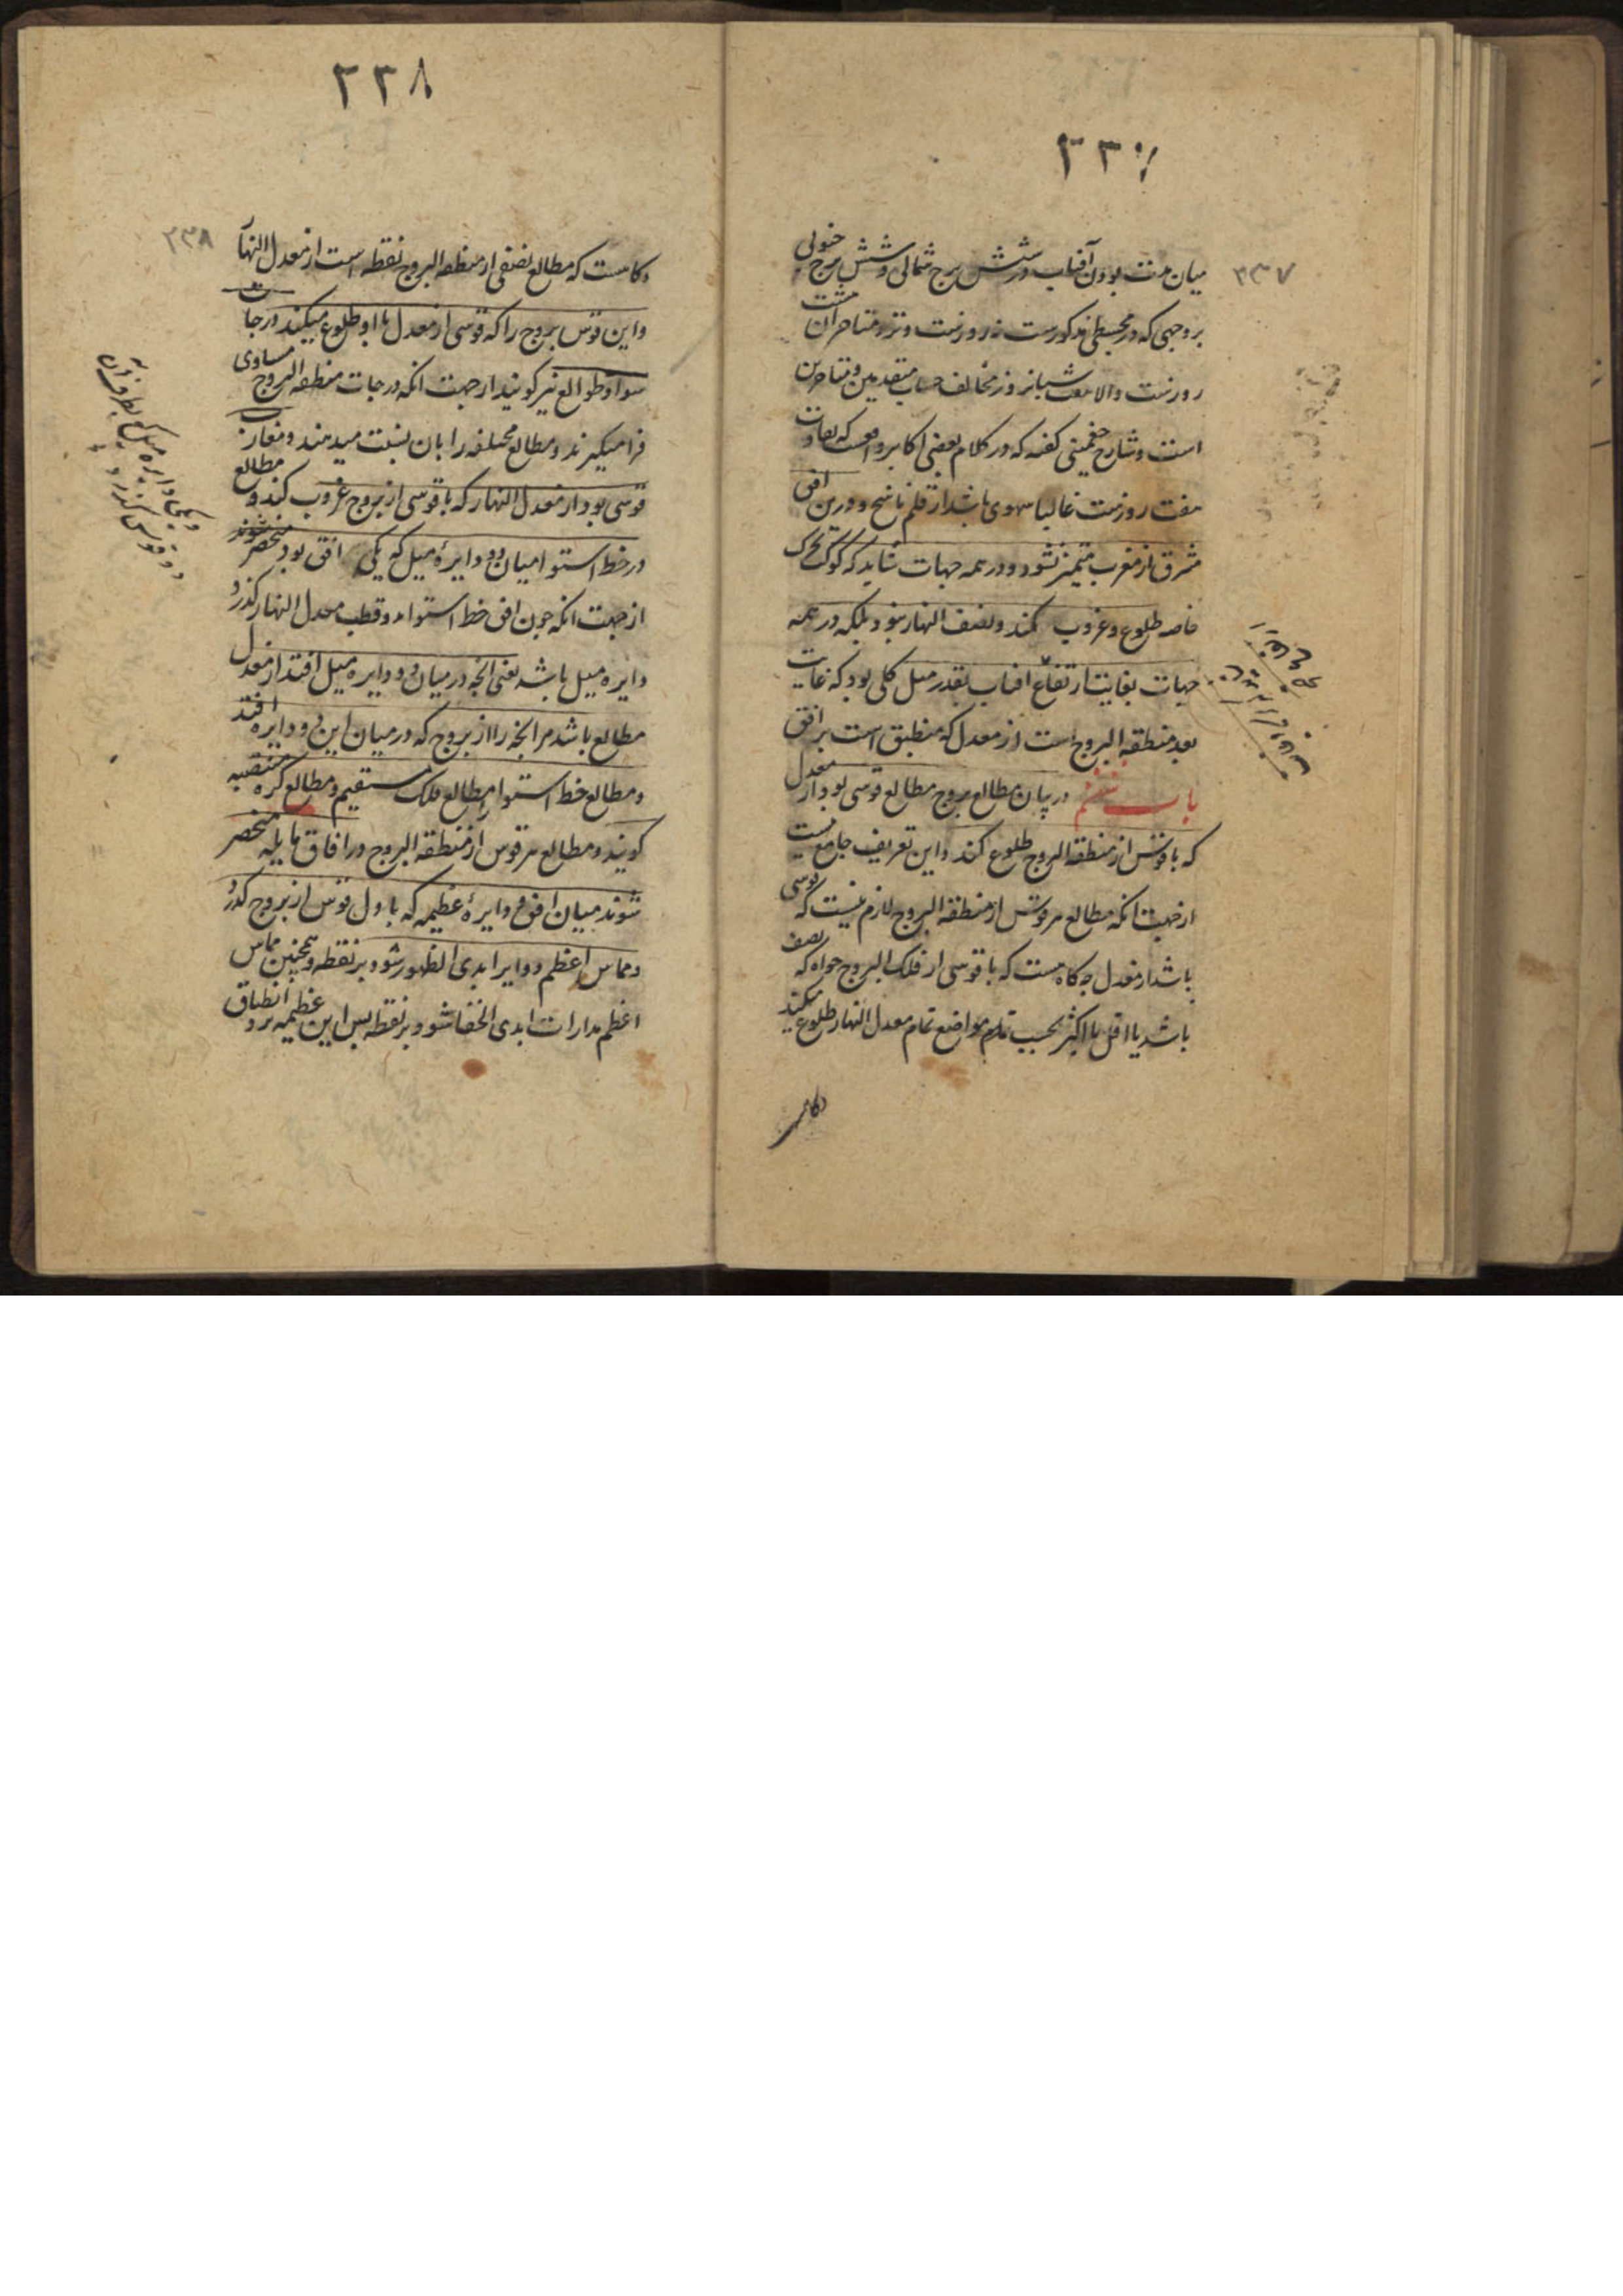 ۲۳۷
۲۳۷
میان مدت بودن آفتاب در شش برج شمالی و شش برج جنوبی
بر وجهی که در مجسطی مذکورست نه روزست و نزد متاخران هشت
روزست والا مخالف حساب متقدمین و متاخرین
است و شارح چغمینی کفته که در کلام بعضی اکابر واقعست که تفاوت
هفت روزست غالبا سهوی باشد از قلم ناسخ و درین افق
مشرق از مغرب متمیز نشود و در همه جهات شاید که کوکب بحرکت
خاصه طلوع و غروب کند و نصف النهار نبود بلکه در همه
جهات بغایت ارتفاع افتاب بقدر میل کلی بود که غایت
بعد منطقه البروج است از معدل که منطبق است بر افق
باب ششم در بیان مطالع بروج مطالع قوسی بود از معدل
که با قوسی از منطقه البروج طلوع کند و این تعریف جامع نیست
از جهت انکه مطالع هر قوسی از منطقه البروج لازم نیست که قوسی
باشد از معدل چه کاه هست که با قوسی از فلک البروج خواه که نصف
باشد یا اقل یا اکثر بحسب مواضع تمام معدل النهار طلوع میکند
و کاهست
۲۳۸
۲۳۸
و کاهست که مطالع نصفی از منطقه البروج نقطه است از معدل النهار
و این قوس بروج را که قوسی از معدل با او طلوع میکند درجات
سوا و طوالع نیز کویند از جهت انکه درجات منطقه البروج مساوی
فرا میکیرند و مطالع مختلفه را بان نسبت میدهند و مغارب
قوسی بود از معدل النهار که با قوسی از بروج غروب کند و مطالع
در خط استوا میان دو دایرهٔ میل که یکی افق بود منحصر شوند
از جهت انکه چون افق خط استوا بدو قطب معدل النهار کذرد
دایره میل باشد یعنی انچه در میان دو دایره میل افتد از معدل
مطالع باشد مر انچه را از بروج که در میان این دو دایره افتد
و مطالع خط استوا را مطالع فلک مستقیم و مطالع کره منتصبه
کویند و مطالع هر قوس از منطقه البروج در افاق مایله منحصر
شوند میان افق و دایرهٔ عظیمه که باول قوس از بروج کذرد
و مماس اعظم دوایر ابدی الظهور شود بر نقطه و همچنین مماس
اعظم مدارات ابدی الخفا شود بر نقطه پس این عظیمه بر او انطباق